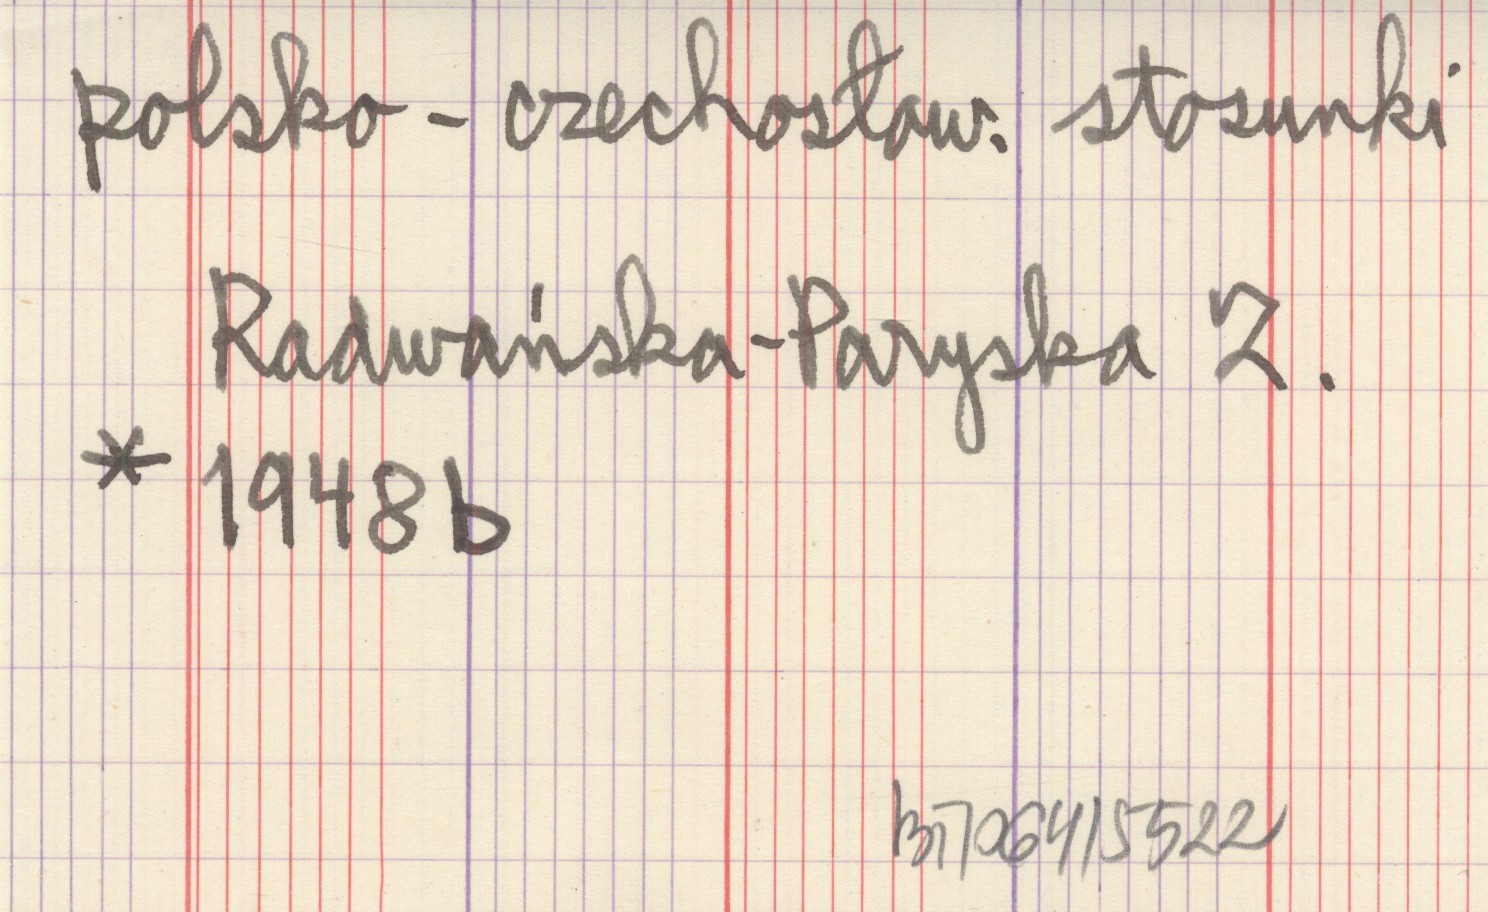 polsko-czechosław. stosunki
Radwańska-Paryska Z.
* 1948b